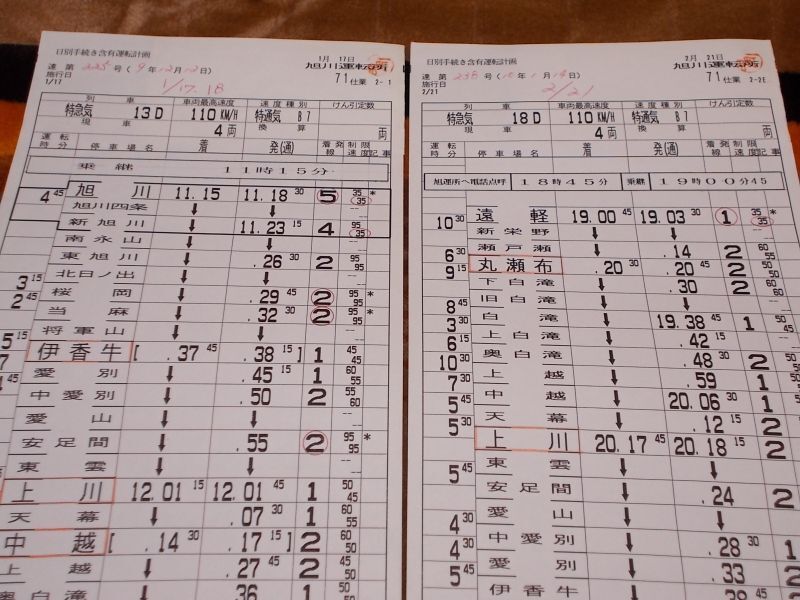 日別手続き含有運転計画
1月 17日
旭川運転所
達 第 225 号 (9年12月12日)
施行日
1/17
1/17.18
71仕業 2-1
列車 車両最高速度 速度種別 けん引定数
特急気 13D 110KM/H 特通気 B7
現車 4両 換算 両
運転時分 停車場名 着 発(通) 着発線 制限速度 記事
乗継 11時15分
4 45 旭川 11.15 11.18 30 5 35 35 *
旭川四条 ↓ ↓ --
新旭川 ↓ 11.23 15 4 95 35
南永山 ↓ ↓ --
東旭川 ↓ .26 30 2 95 95
3 15 北日ノ出 ↓ ↓ --
2 45 桜岡 ↓ .29 45 2 95 95 *
当麻 ↓ .32 30 2 95 95 *
将軍山 ↓ ↓ --
伊香牛 [ .37 45 .38 15 ] 1 45 45
愛別 ↓ .45 15 1 60 55
中愛別 ↓ .50 2 55 60
愛山 ↓ ↓ --
安足間 ↓ .55 2 95 95 *
東雲 ↓ ↓ --
上川 12.01 15 12.01 45 1 50 45
天幕 ↓ .07 30 1 60 55
中越 [ .14 30 .17 15 ] 2 60 50
上越 ↓ .27 45 2 60 50
奥白滝 .36 1
日別手続き含有運転計画
2月 21日
旭川運転所
達 第 238 号 (10年1月14日)
施行日
2/21
2/21
71仕業 2-2E
列車 車両最高速度 速度種別 けん引定数
特急気 18D 110KM/H 特通気 B7
現車 4両 換算 両
運転時分 停車場名 着 発(通) 着発線 制限速度 記事
旭運所へ電話点呼 18時45分 乗継 19時00分45
10 30 遠軽 19.00 45 19.03 30 1 35 35 *
新栄野 ↓ ↓ --
6 30 瀬戸瀬 ↓ .14 2 60 55
9 15 丸瀬布 .20 30 .20 45 2 50 50
下白滝 ↓ .30 2 60 55
8 45 旧白滝 ↓ ↓ --
3 30 白滝 ↓ 19.38 45 1 50 45
6 上白滝 ↓ .42 15
10 30 奥白滝 ↓ .48 30 2
7 30 上越 ↓ .59 1
5 45 中越 ↓ 20.06 30 1
5 30 天幕 ↓ .12 15 2
上川 20.17 45 20.18 15 2
5 45 東雲 ↓ ↓
安足間 ↓ .24 2
4 30 愛山 ↓ ↓
4 30 中愛別 ↓ .28 30 1
5 45 愛別 ↓ .33 2
伊香牛